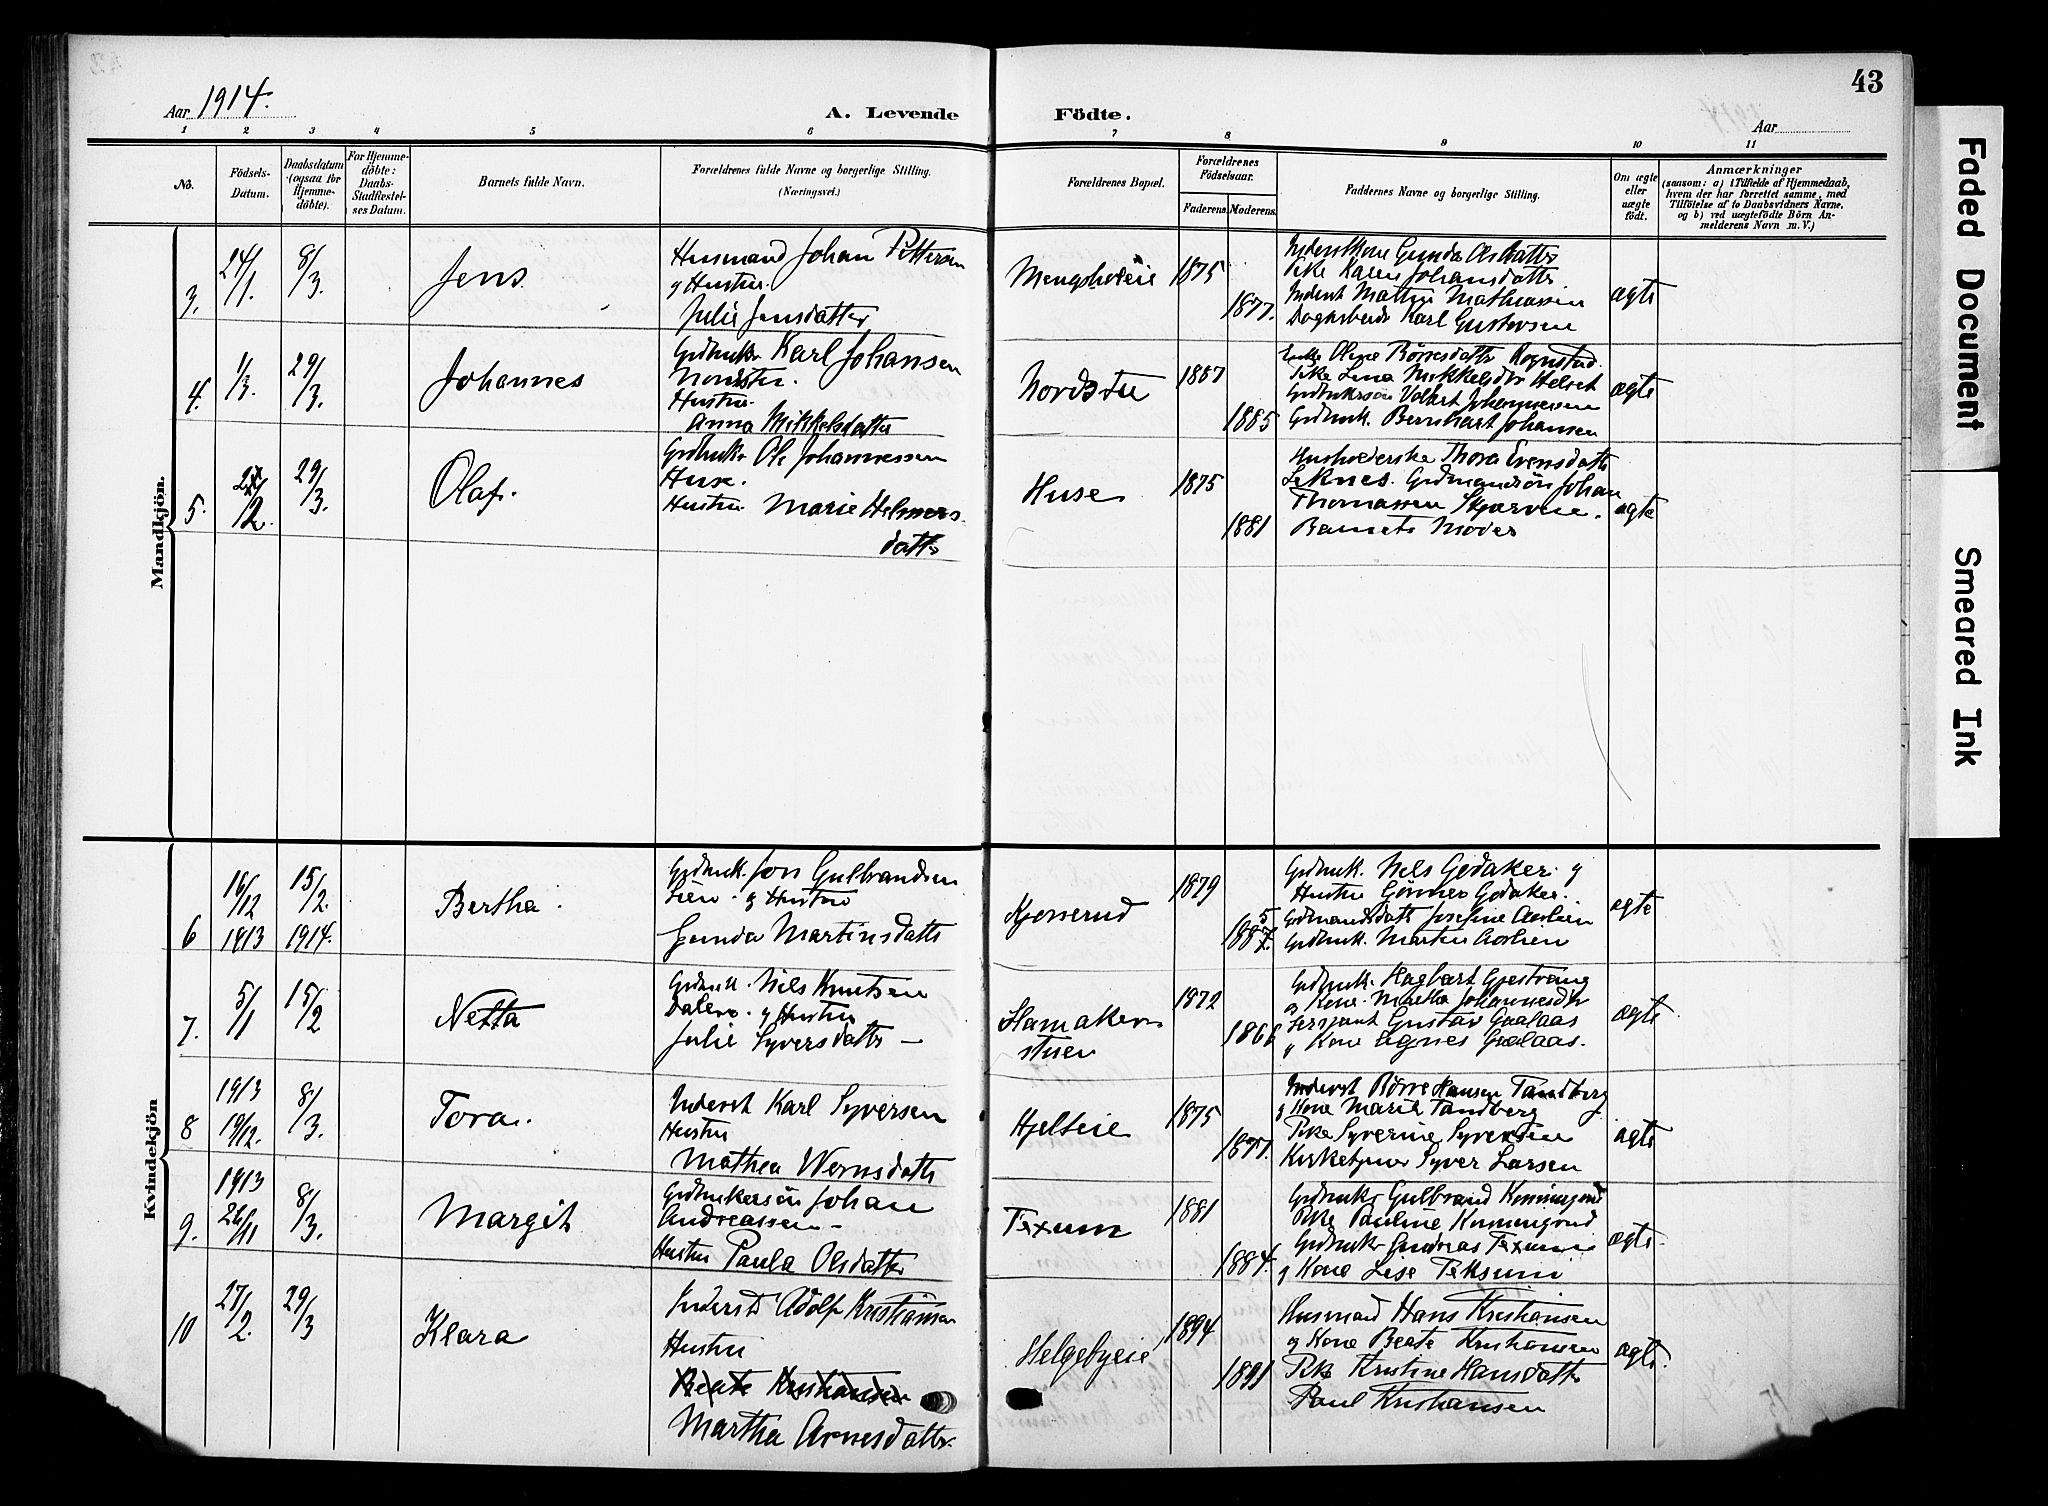 43
Aar 1914.
A. Levende Födte.
Aar
1 2 3 4 5 6 7 8 9 10 11
No.
Födsels-
Datum.
Daabsdatum
(ogsaa for
Hjemme-
döbte).
For Hjemme-
döbte:
Daabs-
Stadfæstel-
ses Datum.
Barnets fulde Navn.
Forældrenes fulde Navne og borgerlige Stilling.
(Næringsvei.)
Forældrenes Bopæl.
Forældrenes
Födselsaar.
Faderens.
Moderens.
Faddernes Navne og borgerlige Stilling.
Om ægte
eller
uægte
födt.
Anmærkninger
(saasom: a) i Tilfælde af Hjemmedaab,
hvem der har forrettet samme, med
Tilföielse af to Daabsvidners Navne,
og b) ved uægtefödte Börn An-
melderens Navn m. V.)
Mandkjön.
3. 24/1. 8/3. Jens
Husmand Johan Pettersen
og Hustru
Julie Jensdatter
1875
1877.
Pike Karen Johansdatter
Inderst Mathias Mathiassen
Dagarbeider Karl Gustavsen
ægte
4. 1/3. 29/3. Johannes
Grdbruker Karl Johansen
Nordstu.
Hustru.
Anna Mikkelsdatter
Nordstu
1887
1885
Enke Oline Børresdatter Rognstad.
Pike Lina Mikkelsdtr Helset
Grdbrukersøn Volbert Johannessen
Grdbruk. Bernhart Johansen
ægte
5. 12. 29/3. Olaf.
Grdbruker Ole Johannessen
Huse.
Hustru Marie Helmers
datter
Huse
1875
1881
Husholderske Thora Evensdatter
Leknes. Grdmandssøn Johan
Thomassen Skjarvine.
Barnets Moder
ægte
Kvindekjön
6 16/12 1913 15/2. 1914. Bertha.
Grdbruk. Jon Gulbrandsen
Lien. og Hustru
Gunda Martinsdatter
Kjosserud
1879
Grdbruk. Nels Gedaker. og
Hustru Gedaker.
Grdmandsdatter Josefine Aaslien
Grdbruk. Martin Aaslien
ægte
7. 5/1 15/2 Netta
Grdbruk. Nils Knutsen
Dalen. og Hustru
Julie Syversdatter -
Hamakers
stuen
1872
Grdbruk. Hagbart Gjestvang
og Kone. Martha Johannesdtr
Sersjant Gustav Gaalaas
og Kone Agnes Gaalaas.
ægte
8 1913 19/12. 8/3. Tora.
Inderst Karl Syversen
Hustru
Mathea Wernsdatter
Hjelteie
1875
1877.
Inderst Børre Hansen Tandberg
og Kone Marie Tandberg
Pike Syverine Syversen
Kirketjener Syver Larsen
ægte
9. 1913 26/11 8/3. Margit
Grdbrukersøn Johan
Andreassen -
Hustru Paula Olsdatter
Texum
1881
1884.
Grdbruker Gulbrand
Pike Pauline
Grdbruker Andreas Texum
og Kone Lise Teksum
ægte.
10 27/2. 29/3 Klara
Inderst Adolf Kristiansen
Hustru
Beate Kristiansen
Martha Arnesdatter.
Helgebyeie
1894
1891
Husmand Hans Kristiansen
og Kone Beate Kristiansen
Pike Kristine Hansdatter
Paul Kristiansen
ægte.
Faded Document
Smeared Ink